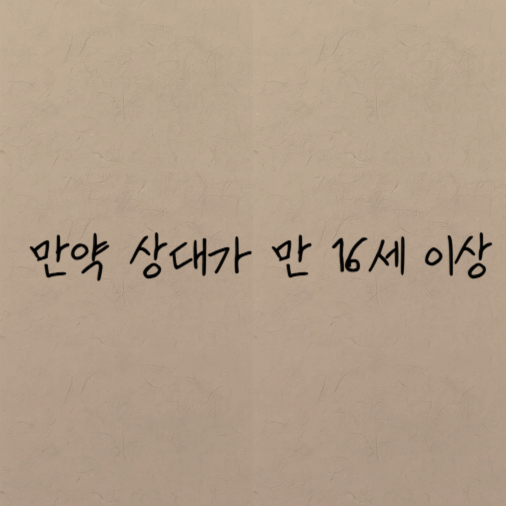 만약 상대가 만 16세 이상